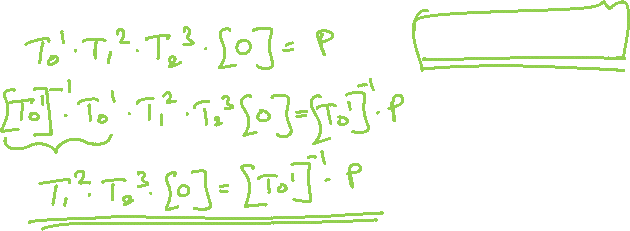 T₀¹ · T₁² · T₂³ · [0] = P
[T₀¹]⁻¹ · T₀¹ · T₁² · T₂³ [0] = [T₀¹]⁻¹ · P
T₁² · T₂³ · [0] = [T₀¹]⁻¹ · P